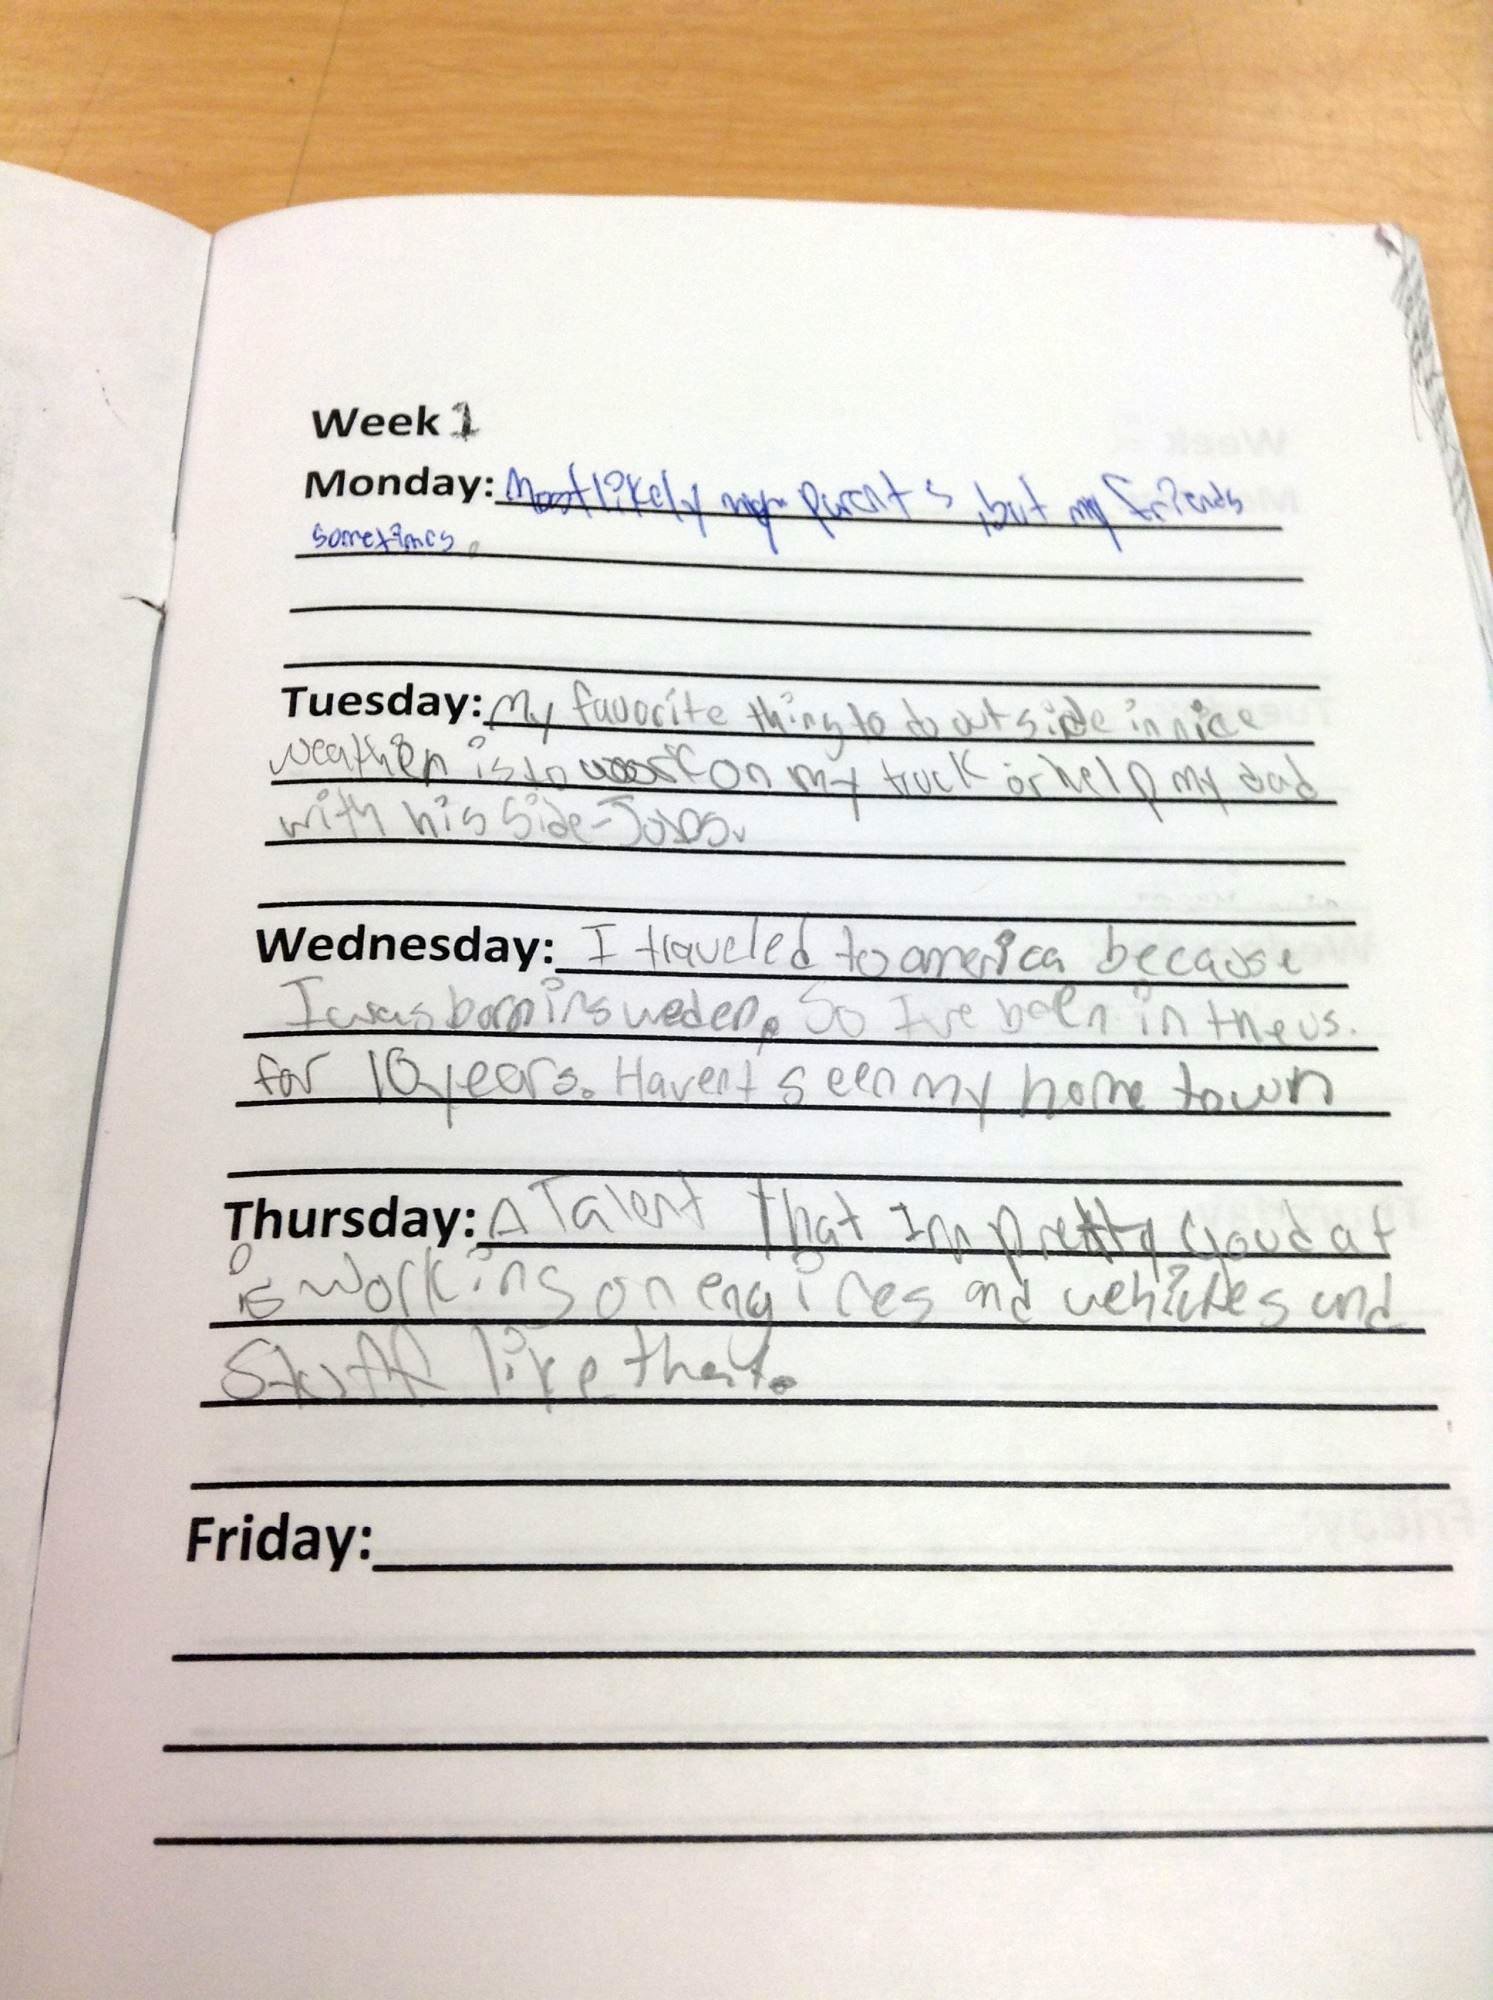 Week 1
Monday: Most likely my parents, but my friends
sometimes.
Tuesday: My favorite thing to do outside in nice
weather is to work on my truck or help my dad
with his side-Jobs.
Wednesday: I traveled to america because
I was born in sweden. So I've been in the us.
for 10 years. Havent seen my home town
Thursday: A Talent That Im pretty good at
is working on engines and vehicles and
Stuff like that.
Friday: